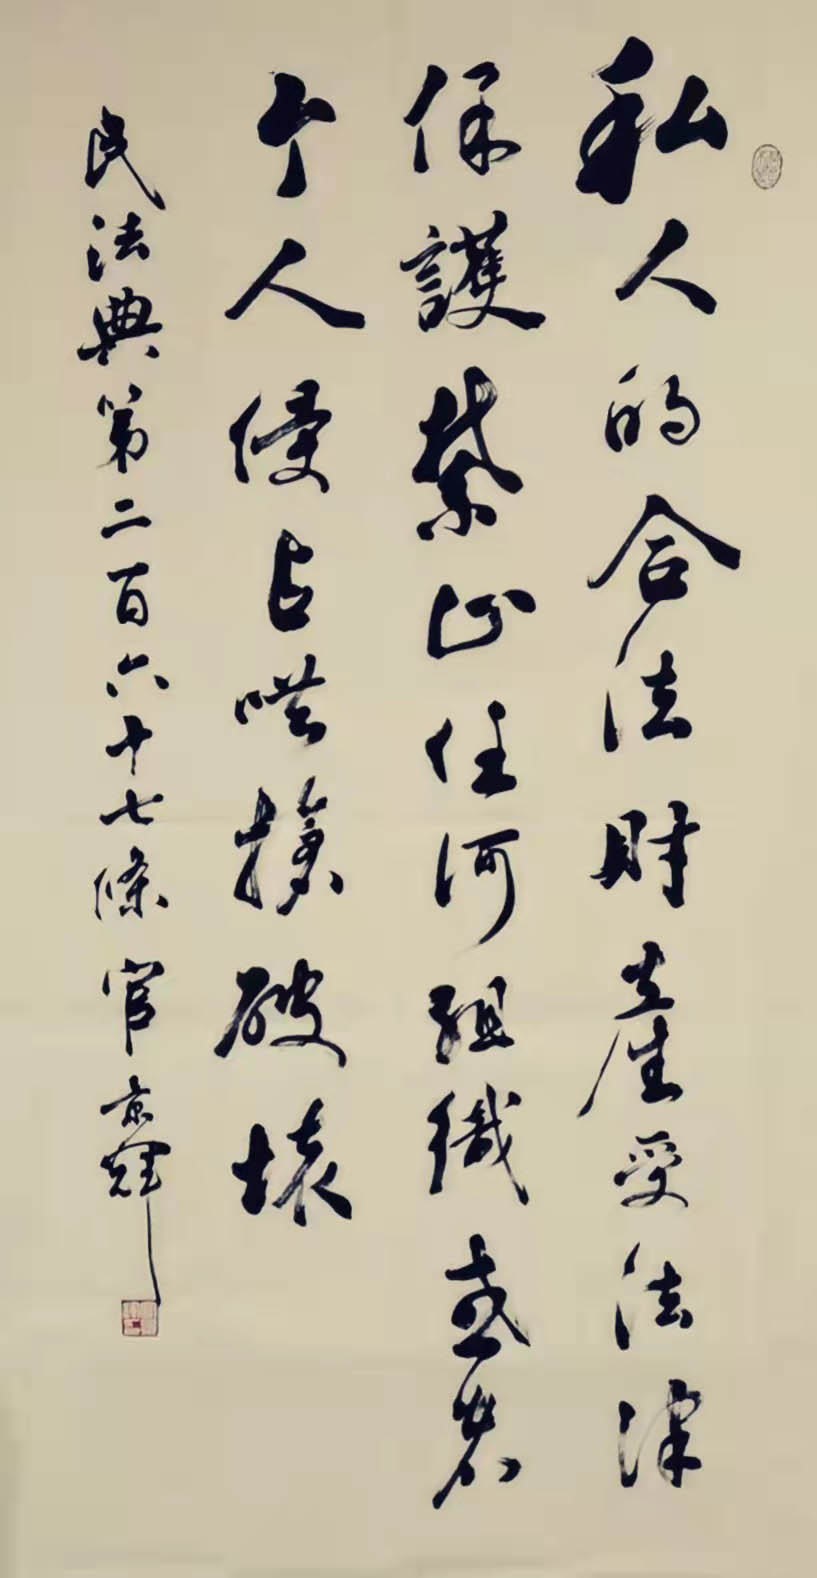 私人的合法财产受法律
保護禁止任何组織或者
个人侵占哄搶破壞
民法典第二百六十七條官京輝